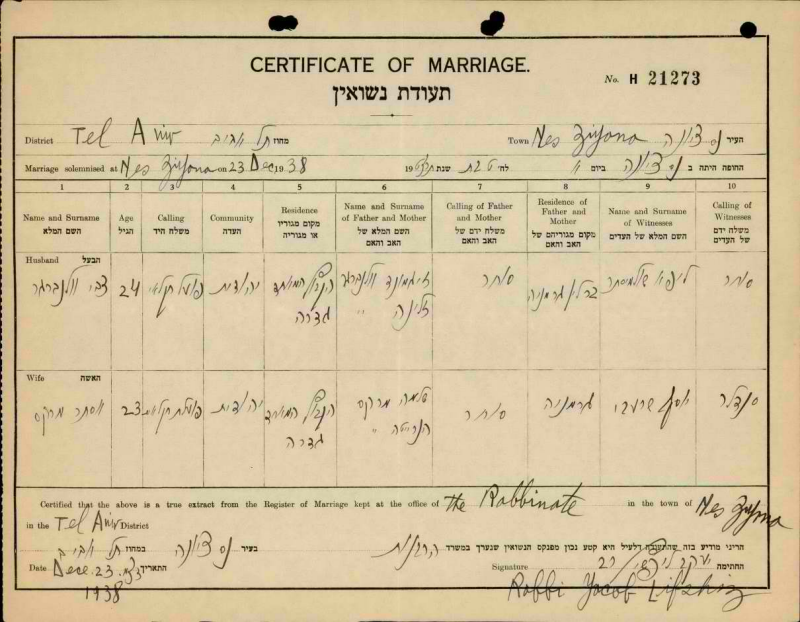 CERTIFICATE OF MARRIAGE.
No. H 21273
תעודת נשואין
District Tel Aviv תל אביב מחוז Town Nes Ziyona נס ציונה העיר
Marriage solemnised at Nes Ziyona on 23 Dec 1938 החופה היתה ב נס ציונה ביום א לח' טבת שנת
1 2 3 4 5 6 7 8 9 10
Name and Surname השם המלא
Age הגיל
Calling משלח היד
Community העדה
Residence מקום מגוריו או מגוריה
Name and Surname of Father and Mother השם המלא של האב והאם
Calling of Father and Mother משלח ידם של האב והאם
Residence of Father and Mother מקום מגוריהם של האב והאם
Name and Surname of Witnesses השם המלא של העדים
Calling of Witnesses משלח ידם של העדים
Husband הבעל
צבי וולנברגר 24 פועל חקלאי יהודית גדרה זיגמונד וולנברגר סוחר ברלין גרמניה ליפא סוחר
Wife האשה
אסתר מרקס 23 פועלת חקלאית יהודית גדרה שלמה מרקס סוחר גרמניה יוסף שרעבי סנדלר
Certified that the above is a true extract from the Register of Marriage kept at the office of the Rabbinate in the town of Nes Ziyona
in the Tel Aviv District
הריני מודיע בזה שהתעודה דלעיל היא קטע נכון מפנקס הנשואין שנערך במשרד הרבנות
בעיר נס ציונה במחוז תל אביב
Date Dec. 23. 1938 התאריך
Signature החתימה
Rabbi Yacob Lifshiz